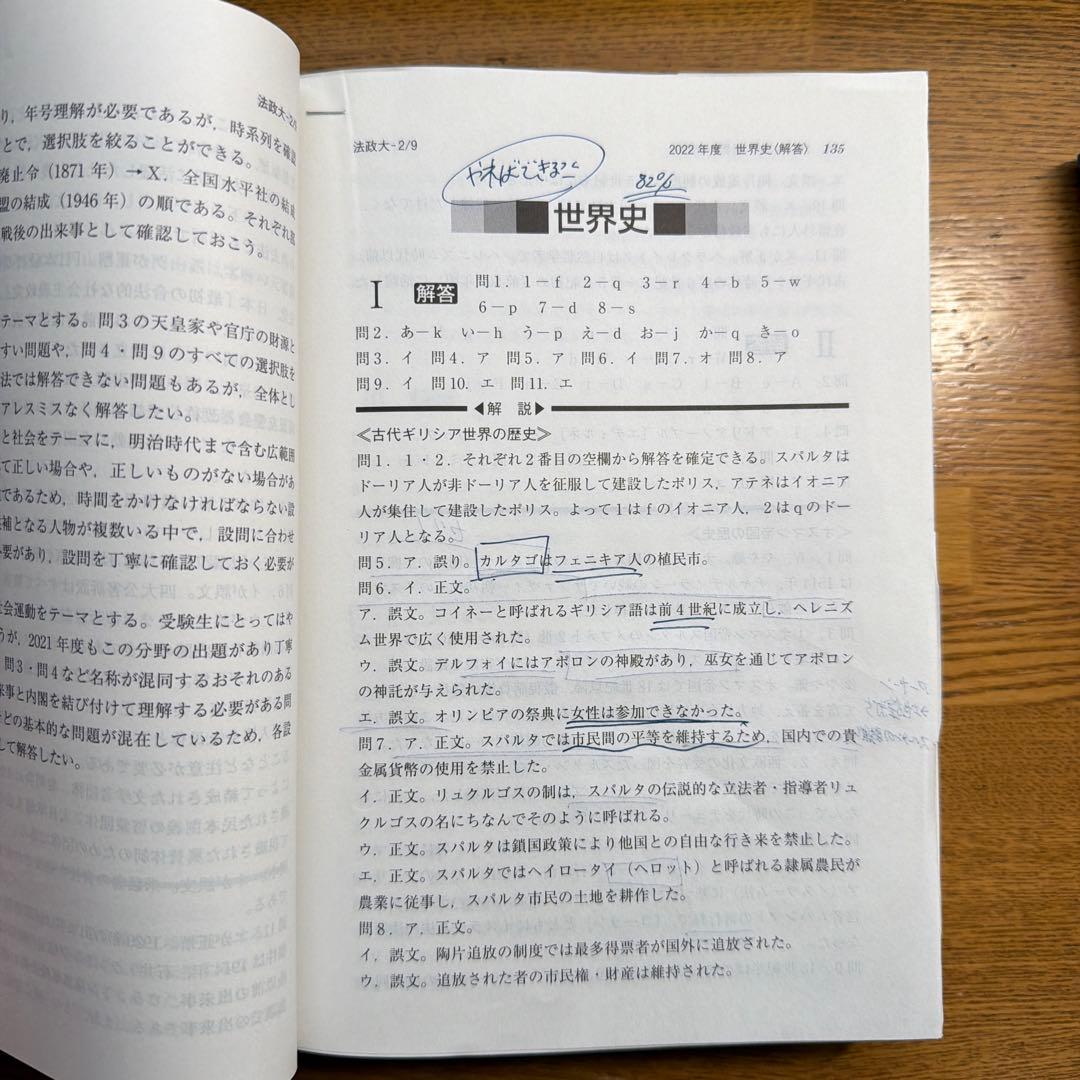 法政大-2/
り，年号理解が必要であるが，時系列を確認
とで，選択肢を絞ることができる。
廃止令（1871年）→X．全国水平社の結成
盟の結成（1946年）の順である。それぞれ
戦後の出来事として確認しておこう。
テーマとする。問3の天皇家や官庁の財源と
すい問題や，問4・問9のすべての選択肢を
法では解答できない問題もあるが，全体とし
アレスミスなく解答したい。
と社会をテーマに，明治時代まで含む広範囲
て正しい場合や，正しいものがない場合があ
であるため，時間をかけなければならない設
補となる人物が複数いる中で，設問に合わせ
要があり，設問を丁寧に確認しておく必要が
社会運動をテーマとする。受験生にとってはや
うが，2021年度もこの分野の出題があり丁寧
問3・問4など名称が混同するおそれのある
来事と内閣を結び付けて理解する必要がある問
どの基本的な問題が混在しているため，各設
して解答したい。
法政大-2/9
2022年度 世界史〈解答〉 135
やればできる
82%
世界史
Ⅰ 解答 問1．1－f 2－q 3－r 4－b 5－w
6－p 7－d 8－s
問2．あ－k い－h う－p え－d お－j か－q き－o
問3．イ 問4．ア 問5．ア 問6．イ 問7．オ 問8．ア
問9．イ 問10．エ 問11．エ
◀解 説▶
≪古代ギリシア世界の歴史≫
問1．1・2．それぞれ2番目の空欄から解答を確定できる。スパルタは
ドーリア人が非ドーリア人を征服して建設したポリス，アテネはイオニア
人が集住して建設したポリス。よって1はfのイオニア人，2はqのドー
リア人となる。
問5．ア．誤り。カルタゴはフェニキア人の植民市。
問6．イ．正文。
ア．誤文。コイネーと呼ばれるギリシア語は前4世紀に成立し，ヘレニズ
ム世界で広く使用された。
ウ．誤文。デルフォイにはアポロンの神殿があり，巫女を通じてアポロン
の神託が与えられた。
エ．誤文。オリンピアの祭典に女性は参加できなかった。
問7．ア．正文。スパルタでは市民間の平等を維持するため，国内での貴
金属貨幣の使用を禁止した。
イ．正文。リュクルゴスの制は，スパルタの伝説的な立法者・指導者リュ
クルゴスの名にちなんでそのように呼ばれる。
ウ．正文。スパルタは鎖国政策により他国との自由な行き来を禁止した。
エ．正文。スパルタではヘイロータイ（ヘロット）と呼ばれる隷属農民が
農業に従事し，スパルタ市民の土地を耕作した。
問8．ア．正文。
イ．誤文。陶片追放の制度では最多得票者が国外に追放された。
ウ．誤文。追放された者の市民権・財産は維持された。